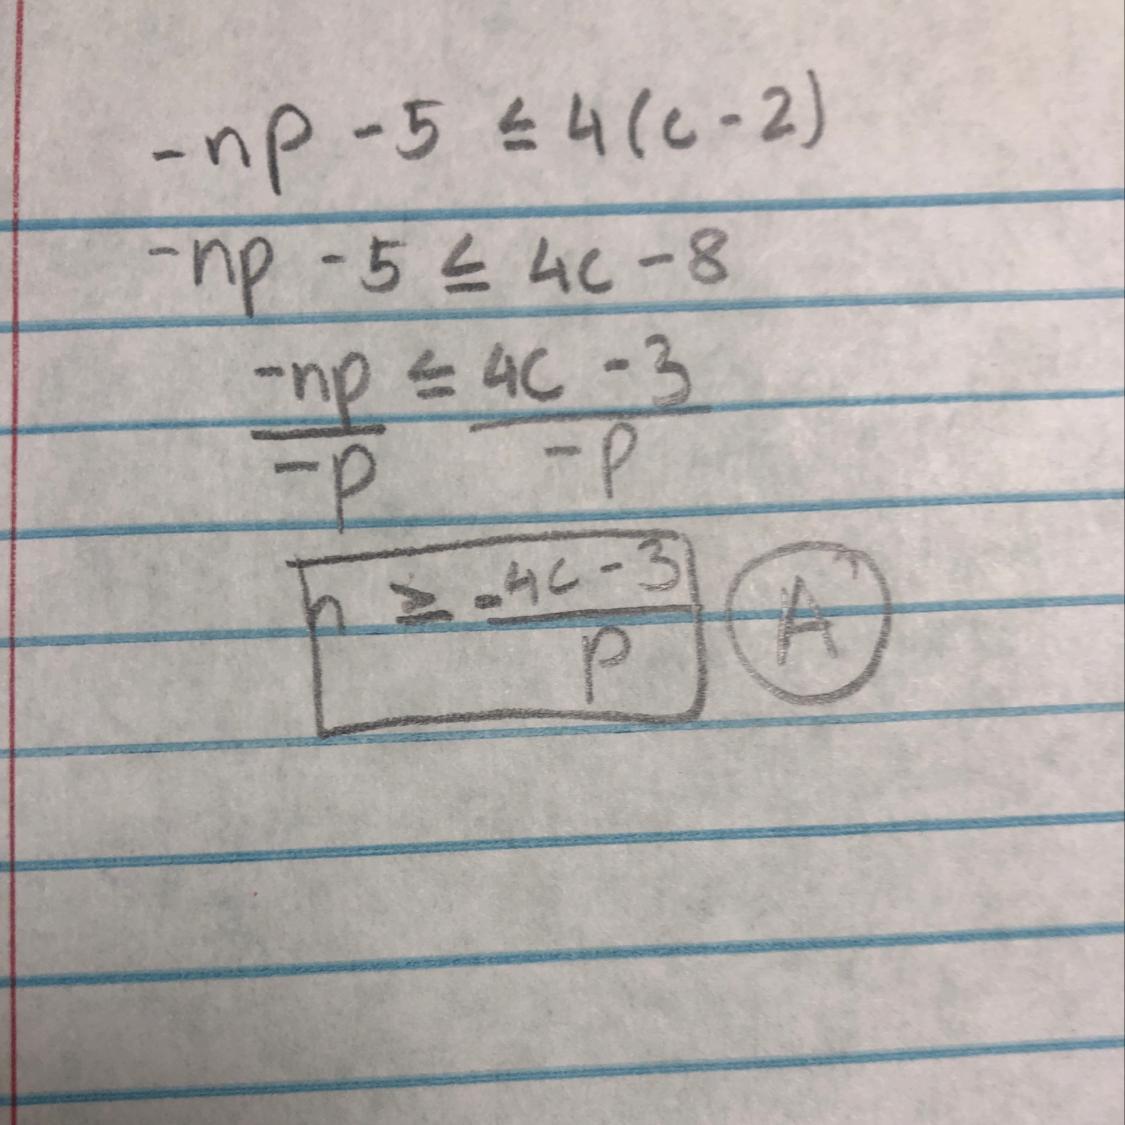 -np - 5 ≤ 4(c - 2)
-np - 5 ≤ 4c - 8
-np ≤ 4c - 3
-p -p
n ≥ -4c - 3 A
p